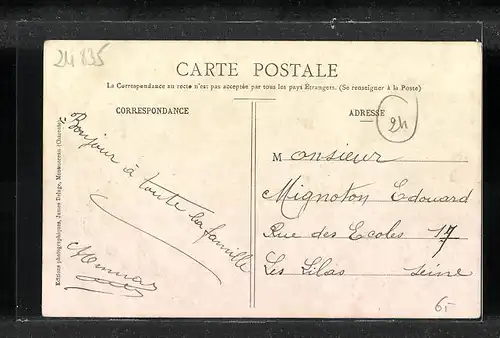 24835
CARTE POSTALE
La Correspondance au recto n'est pas acceptée par tous les pays Étrangers. (Se renseigner à la Poste)
CORRESPONDANCE
Bonjour à toute la famille
Editions photographiques, James Delage, Montmoreau (Charente).
ADRESSE
2h
Monsieur
Mignoton Edouard
Rue des Ecoles 17
Les Lilas Seine
6-